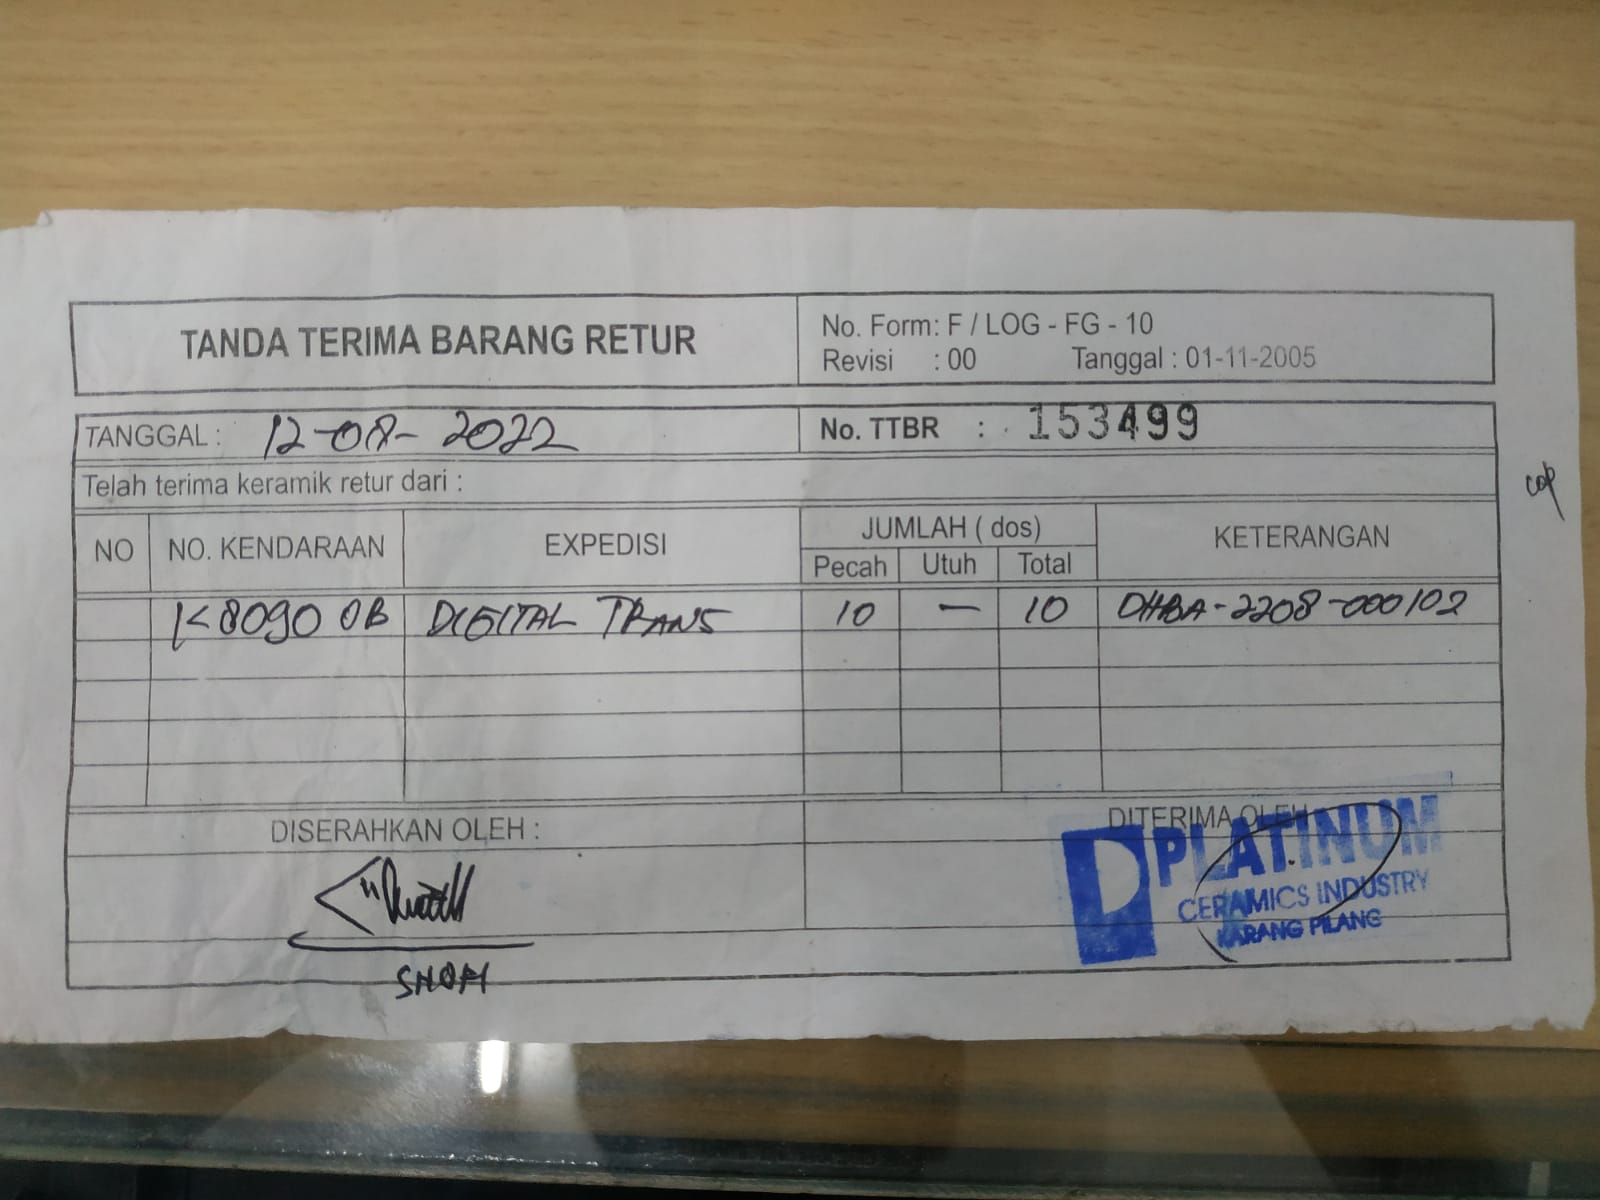 TANDA TERIMA BARANG RETUR
No. Form: F / LOG - FG - 10
Revisi : 00 Tanggal : 01-11-2005
TANGGAL : 12-08-2022
No. TTBR : 153499
Telah terima keramik retur dari :
NO NO. KENDARAAN EXPEDISI JUMLAH ( dos) KETERANGAN
Pecah Utuh Total
K 8090 OB DIGITAL TRANS 10 — 10 DHBA-2208-000102
DISERAHKAN OLEH :
DITERIMA OLEH
PLATINUM
CERAMICS INDUSTRY
KARANG PILANG